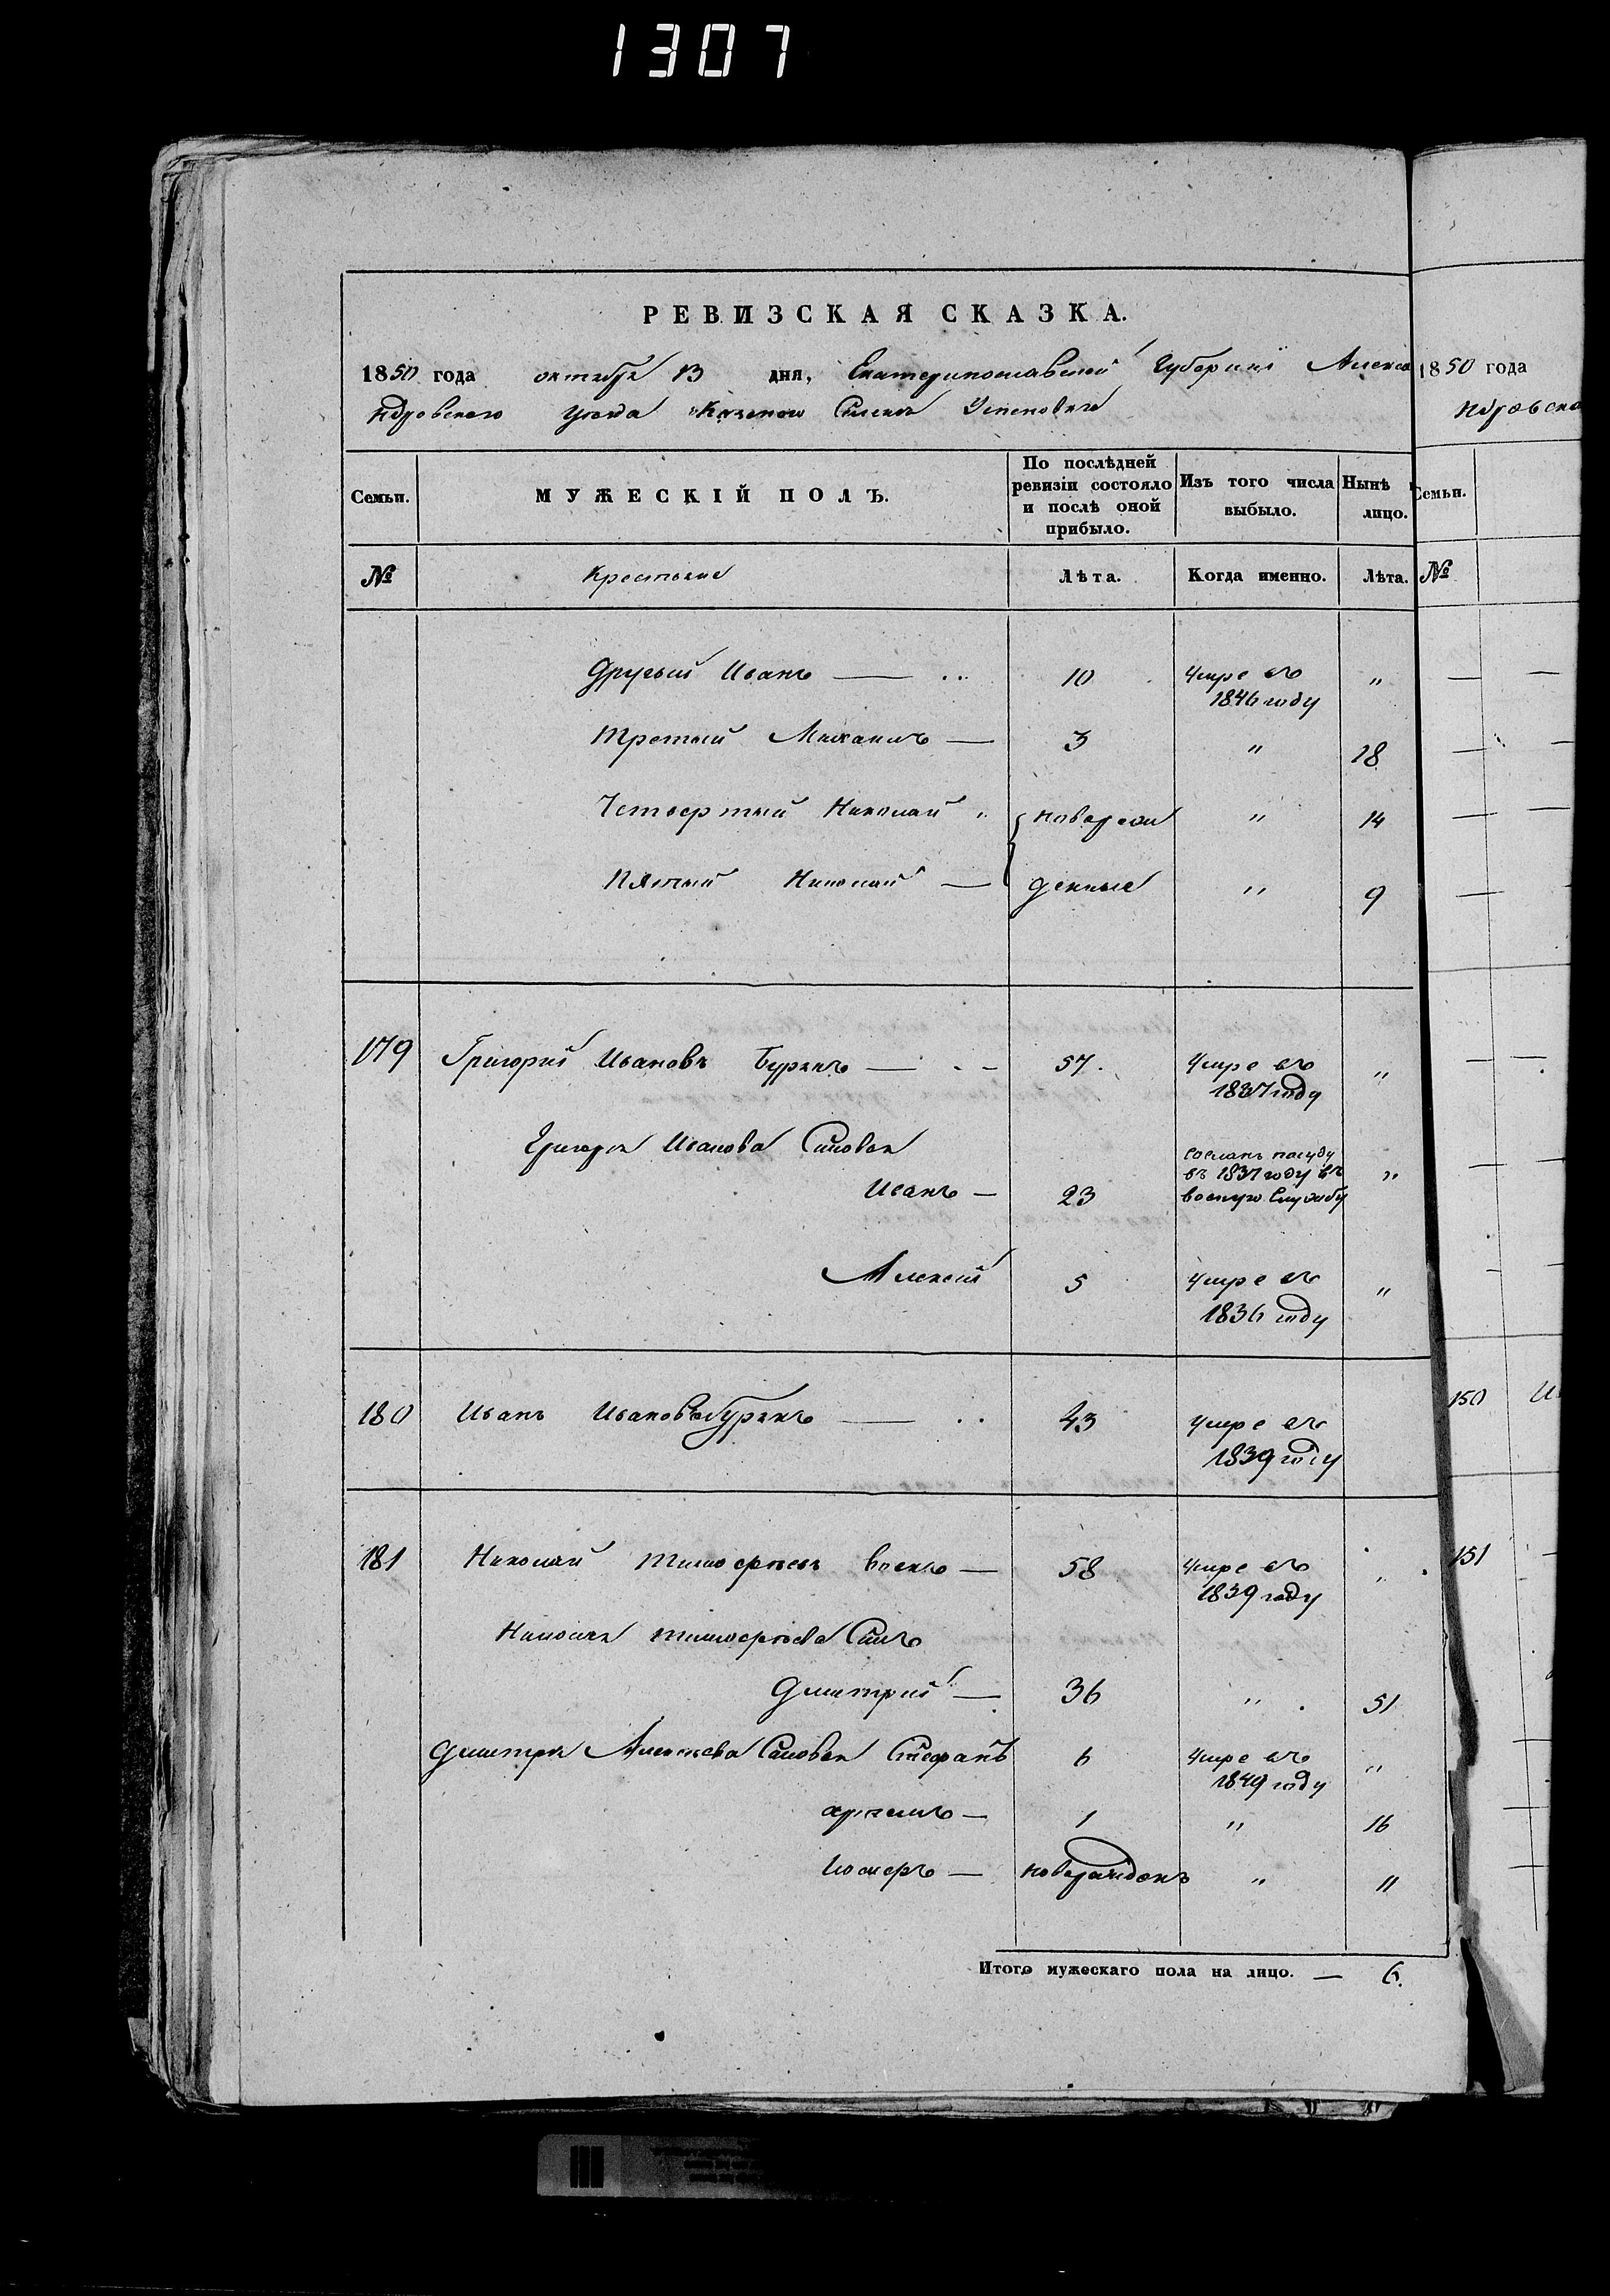 1307
РЕВИЗСКАЯ СКАЗКА.
1850 года октября 13 дня, Екатеринославской Губернии Алекса
ндровского уезда Казенного Селенія Успеновки
1850 года
ндровско
Семьи. МУЖЕСКІЙ ПОЛЪ. По послѣдней ревизіи состояло и послѣ оной прибыло. Изъ того числа выбыло. Нынѣ лицо.
Семьи.
№ Крестьяне Лѣта. Когда именно. Лѣта.
№
Другый Иванъ — 10 умре въ 1846 году "
Третый Михаилъ — 3 " 18
Четвертый Николай " новорож " 14
Пятый Николай — денные " 9
179 Григорий Ивановъ — 57. умре въ 1837 году "
Григорія Иванова Сыновья
Иванъ — 23 въ 1837 году въ военую Службу "
Алексей 5 умре въ 1836 году "
180 Иванъ Ивановъ — 43 умре въ 1839 году
150
181 Николай — 58 умре въ 1839 году "
151
Николая Сынъ
Дмитрий — 36 " 51
Дмитрия Сыновья Стефанъ 6 умре въ 1849 году "
— 1 " 16
— новорожденъ " 11
Итого мужескаго пола на лицо. — 6.